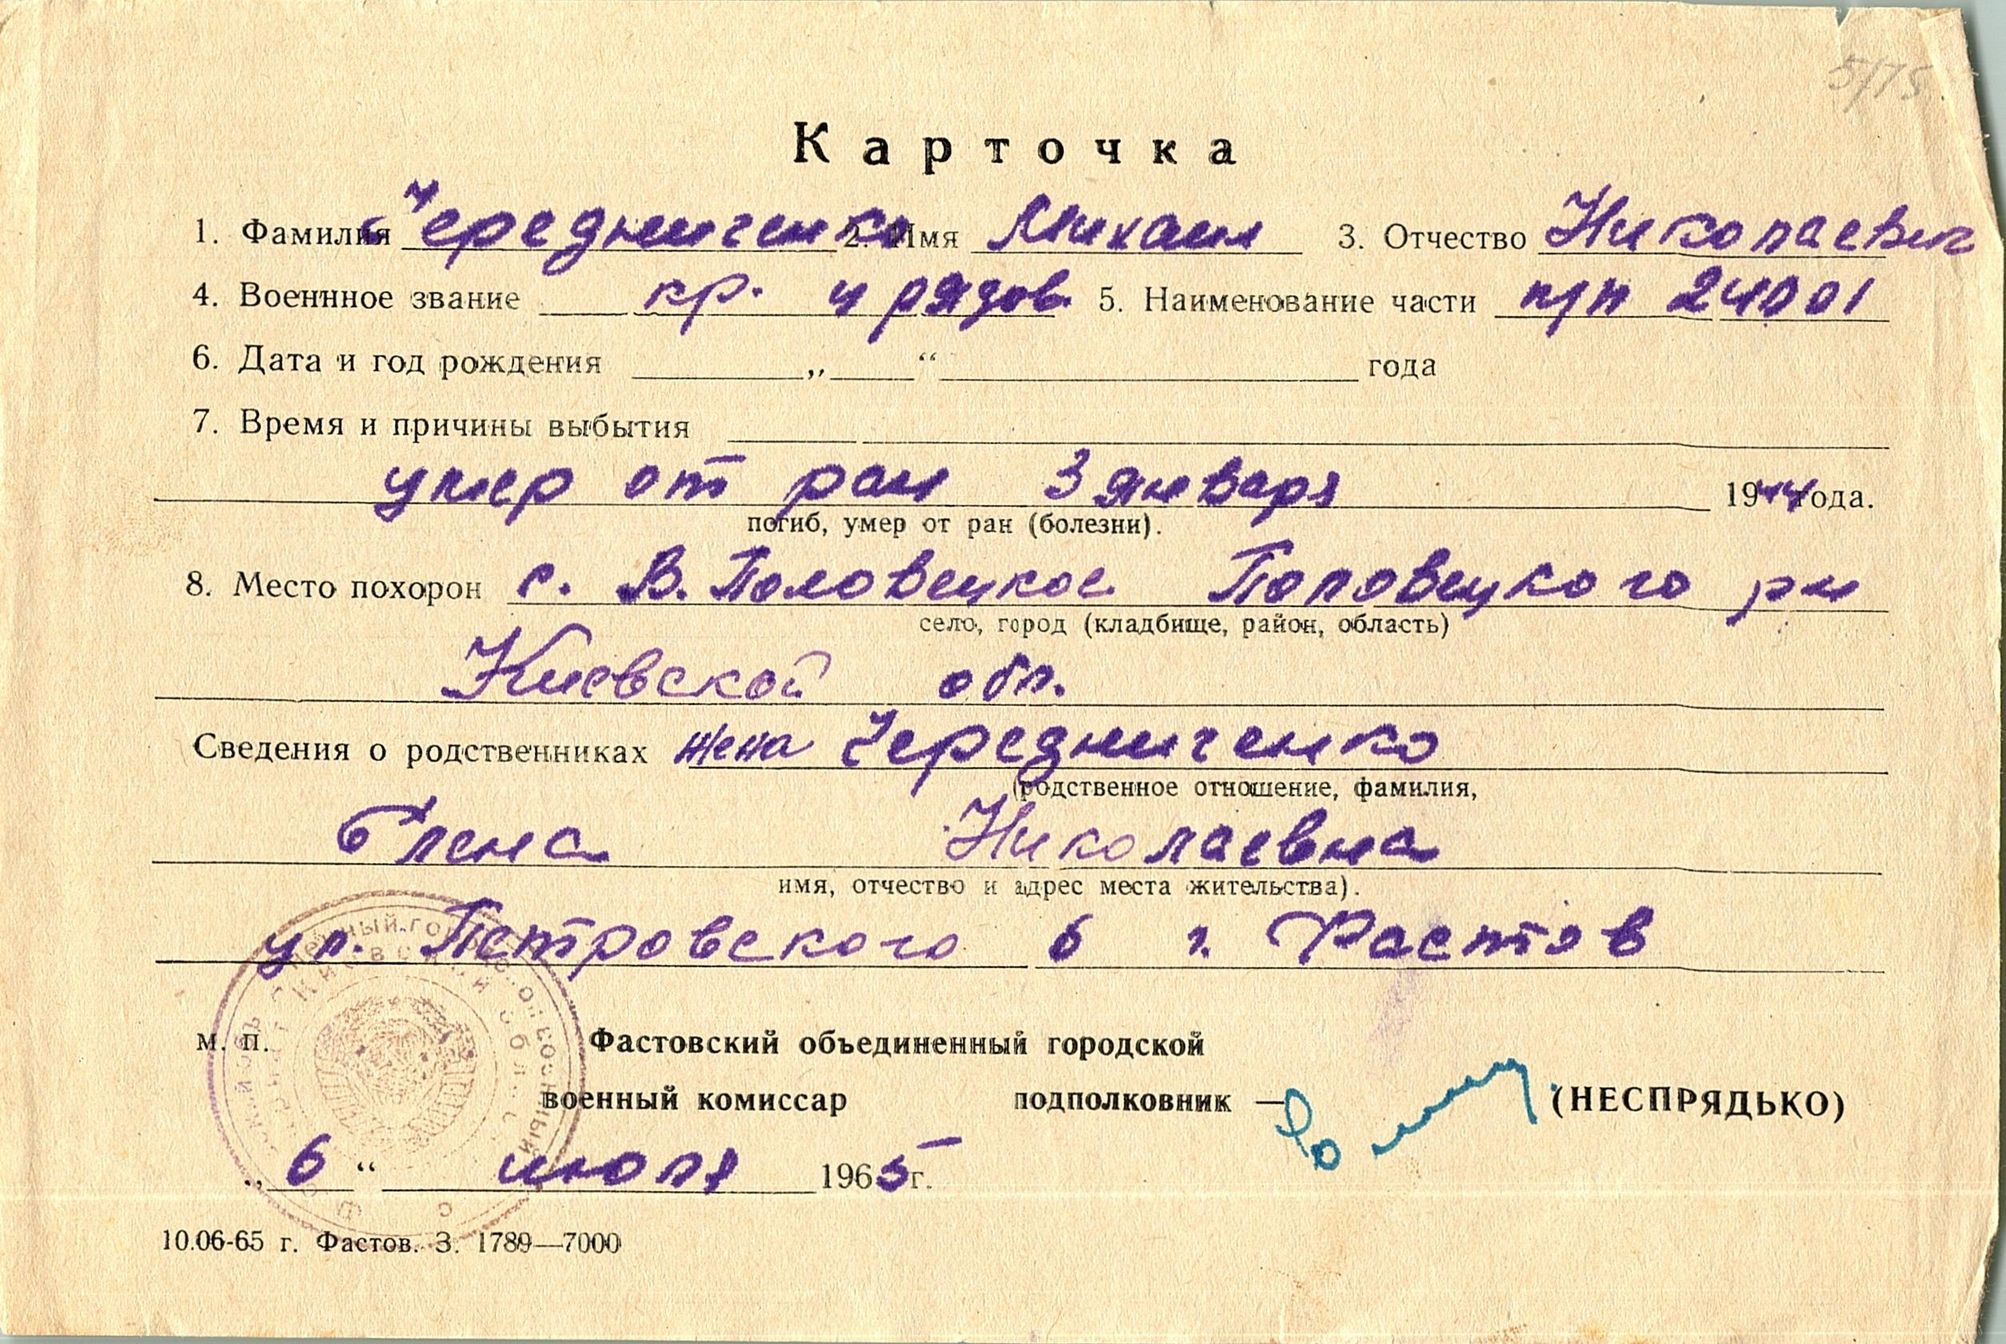 5/75
Карточка
1. Фамилия Чередниченко 2. Имя Михаил 3. Отчество Николаевич
4. Военное звание кр. ч рядов. 5. Наименование части п/п 24001
6. Дата и год рождения „ “ года
7. Время и причины выбытия
умер от ран 3 января 1944 года.
погиб, умер от ран (болезни).
8. Место похорон с. В. Половецкое Половецкого рн
село, город (кладбище, район, область)
Киевской обл.
Сведения о родственниках жена Чередниченко
(родственное отношение, фамилия,
Елена Николаевна
имя, отчество и адрес места жительства).
ул. Петровского 6 г. Фастов
м. п. Фастовский объединенный городской
военный комиссар подполковник — (НЕСПРЯДЬКО)
„ 6 “ июля 1965 г.
10.06-65 г. Фастов. З. 1789—7000